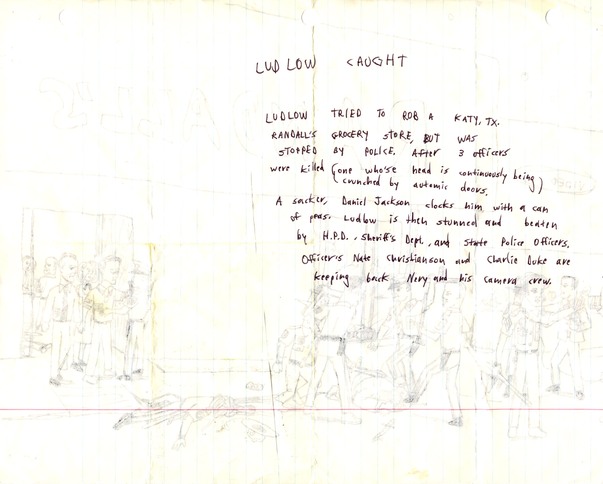 LUDLOW CAUGHT
LUDLOW TRIED TO ROB A KATY, TX.
RANDALL'S GROCERY STORE, BUT WAS
STOPPED BY POLICE. After 3 officers
were killed (one who'se head is continuously being
crunched by automic doors.)
A sacker, Daniel Jackson clocks him with a can
of peas. Ludlow is then stunned and beaten
by H.P.D., Sheriff's Dept., and State Police Officers.
Officer's Nate Christianson and Charlie Duke are
keeping back Nery and his camera crew.